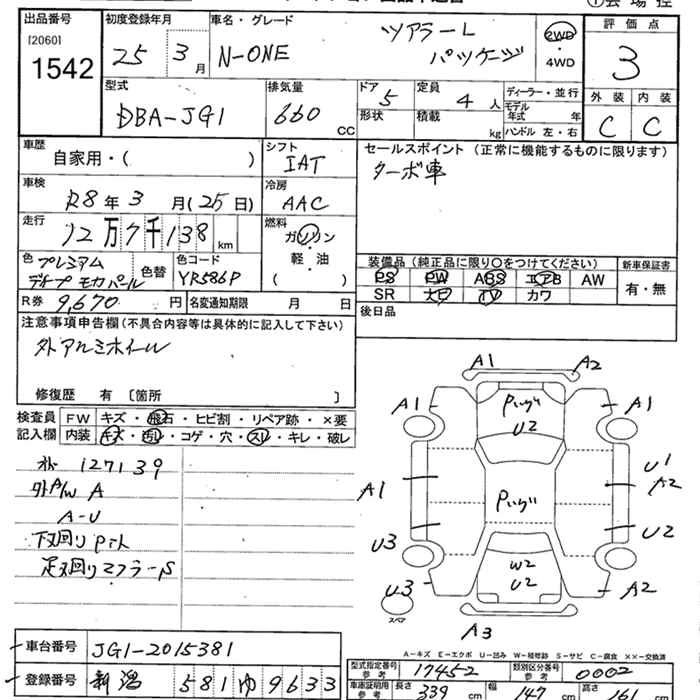 出品番号 初度登録年月 車名・グレード 評価点
[2060]
1542
25 年 3 月
N-ONE ツアラーL パッケージ
2WD・4WD
3
型式 排気量 ドア 定員 ディーラー・並行 外装 内装
DBA-JG1 660 CC
5 4 人
形状 積載 kg
モデル年式 年
ハンドル 左・右
C C
車歴 自家用・( )
シフト IAT
セールスポイント(正常に機能するものに限ります)
ターボ車
車検 R8年 3月(25日)
冷房 AAC
走行 12万7千138 km
燃料 ガソリン・軽・油 ( )
色 プレミアム ディープ モカパール
色替
色コード YR586P
装備品(純正品に限り○をつけてください) 新車保証書
PS PW ABS エアB AW 有・無
SR ナビ TV カワ
R券 9,670 円 名変通知期限 月 日
後日品
注意事項申告欄(不具合内容等は具体的に記入して下さい)
外アルミホイール
修復歴 有 〔箇所 〕
検査員記入欄
FW キズ・飛石・ヒビ割・リペア跡・×要
内装 キズ・汚れ・コゲ・穴・スレ・キレ・破レ
127139
外A/W A
A-U
下回りP
足回りマフラーS
A1 A2
A1 A1
U2
A1
U1
A2
U3 U2
W2
U2
U3 A2
スペア
A3
A-キズ E-エクボ U-凹み W-補修跡 S-サビ C-腐食 ××-交換済
車台番号 JG1-2015381
登録番号 新潟 581 ゆ 9633
型式指定番号 参考 17452
類別区分番号 参考 0002
車庫証明用 参考 長さ 339 cm 幅 147 cm 高さ 161 cm